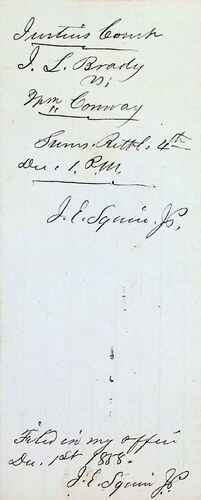 Justins Court
J. L. Brady
vs;
Wm. Conway
Sums. Retbl. 4th
Dec. 1. P.M.
J. E. Squin. Jp.
Filed in my office
Dec. 1st 1888.
J. E. Squin Jp